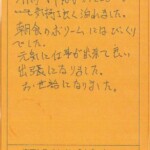 いつも気持ち良く泊れました。
朝食のボリームにはびっくり
でした。
元気に仕事が出来て良い
出張になりました。
お世話になりました